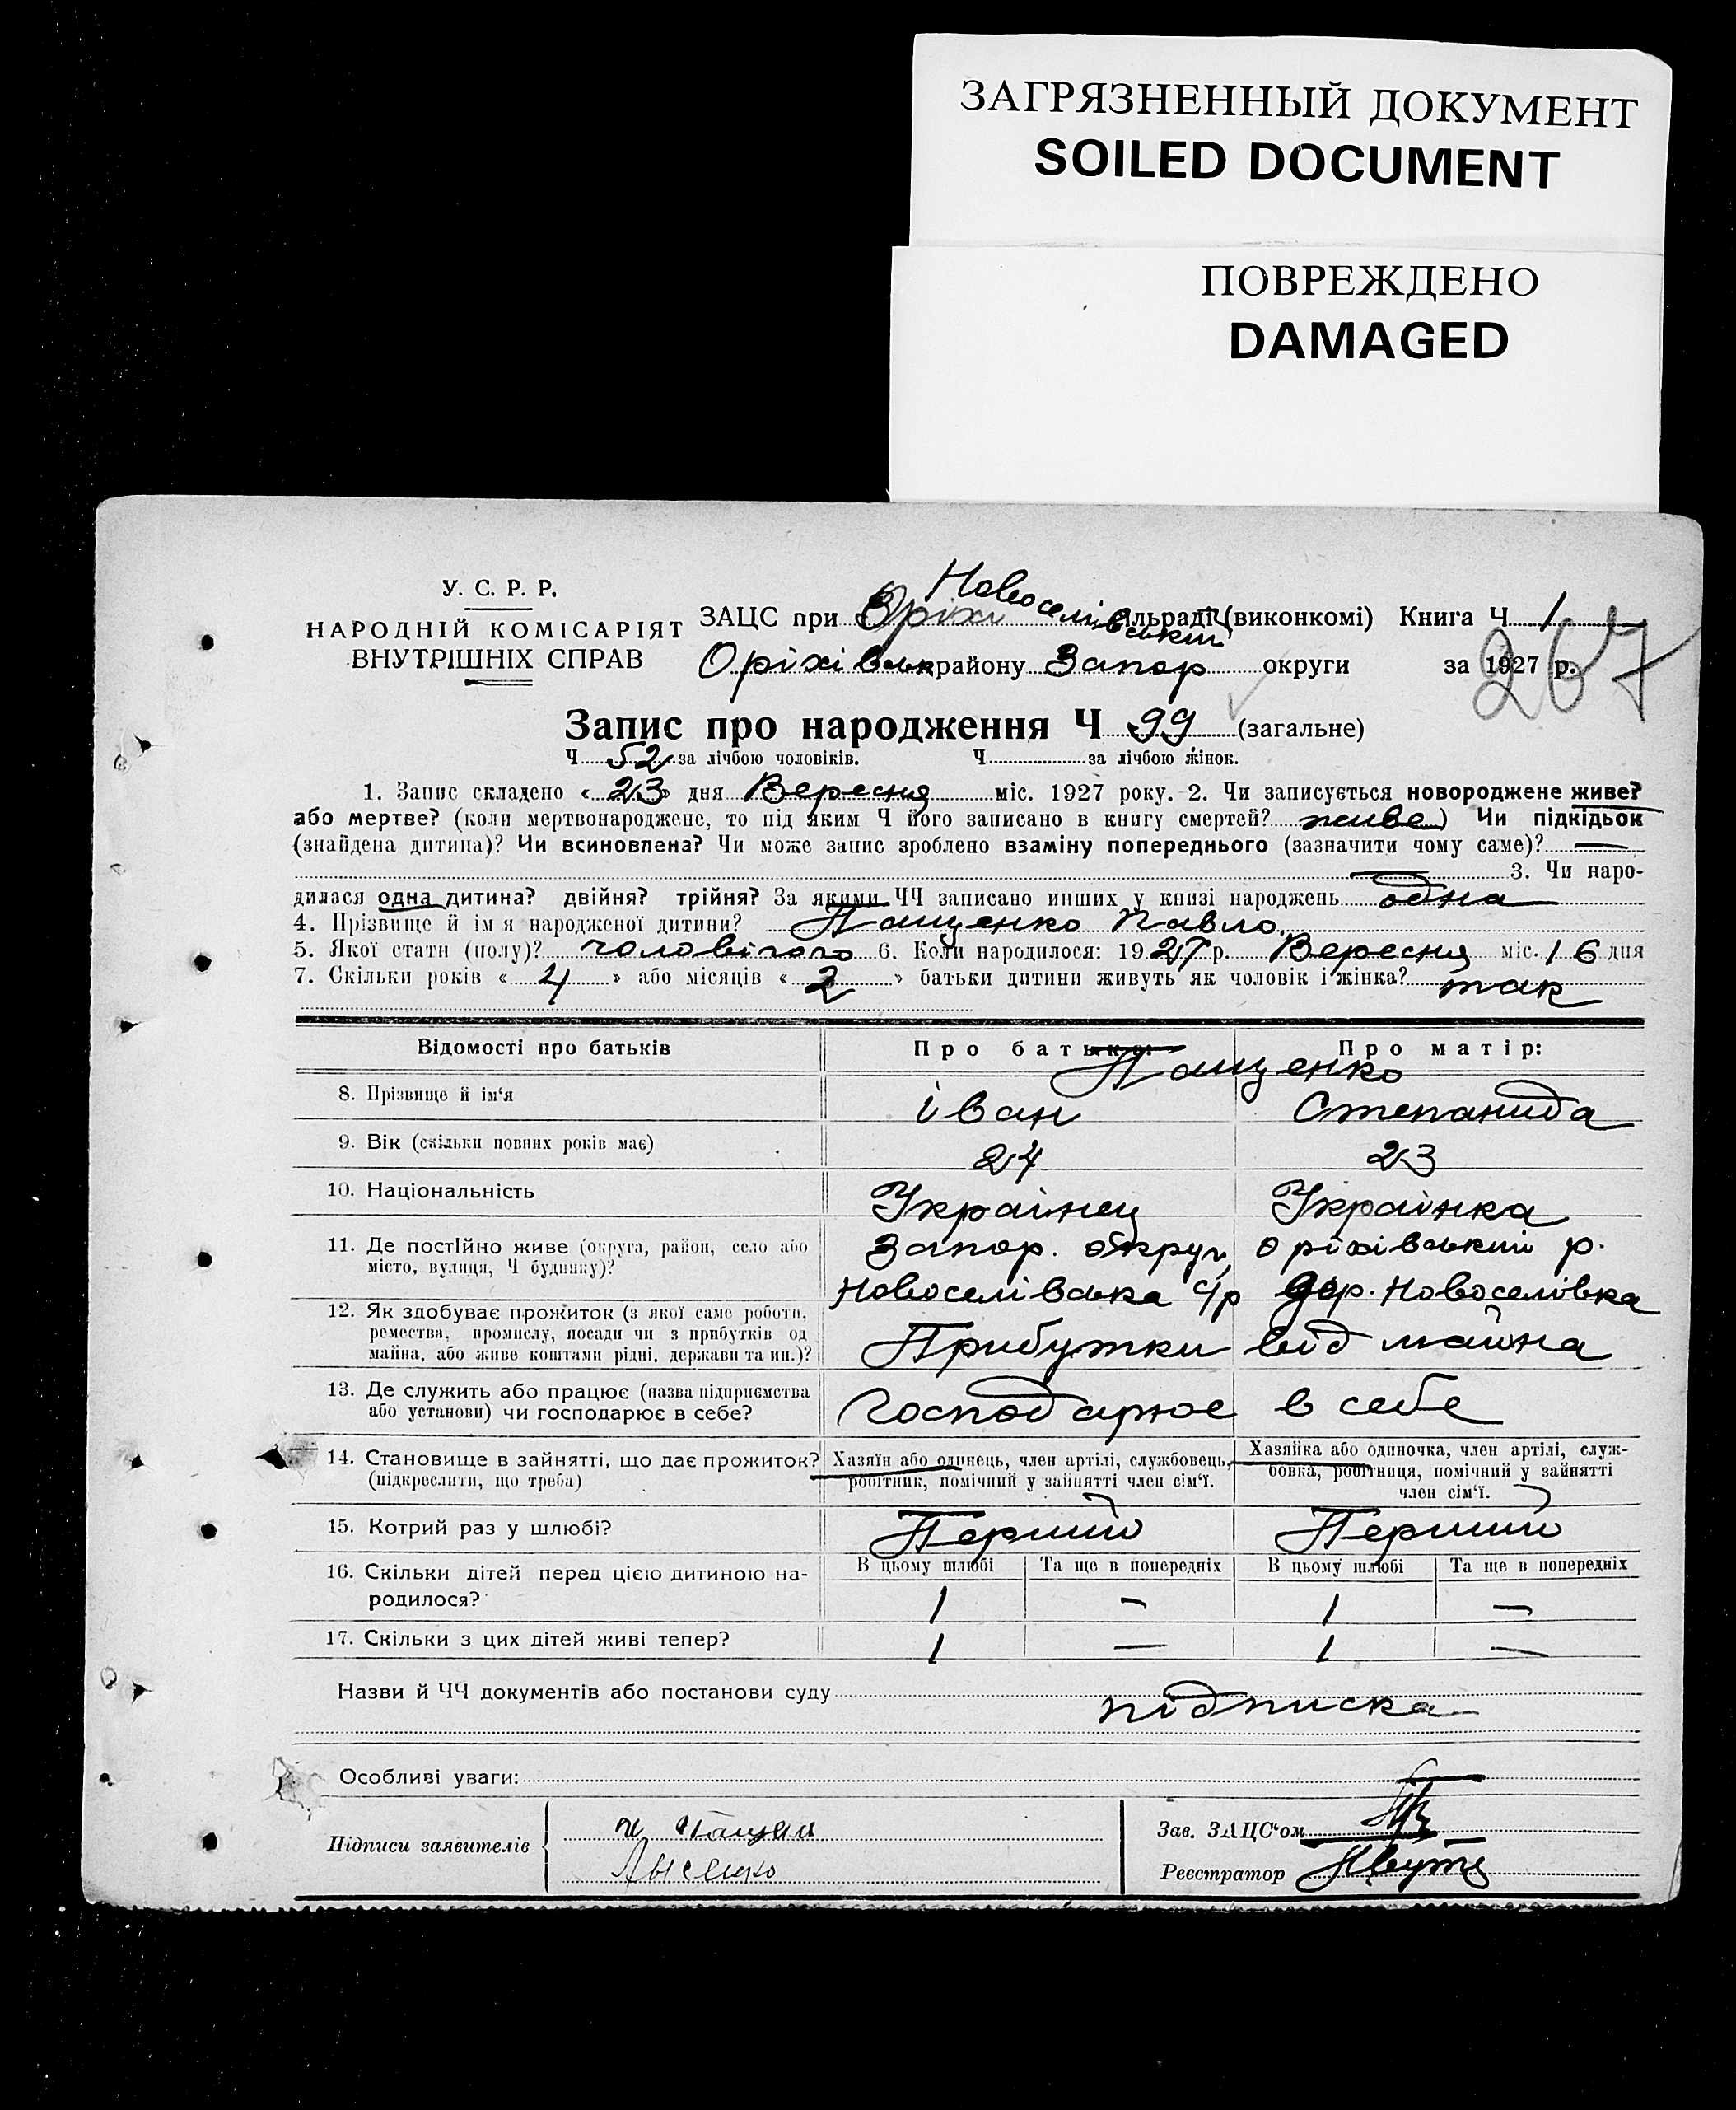 ЗАГРЯЗНЕННЫЙ ДОКУМЕНТ
SOILED DOCUMENT
ПОВРЕЖДЕНО
DAMAGED
У. С. Р. Р.
НАРОДНІЙ КОМІСАРІЯТ
ВНУТРІШНІХ СПРАВ
Новоселівській
ЗАЦС при Оріхі сільраді (виконкомі) Книга Ч 1
267
Оріхівськ району Запор округи за 1927 р.
Запис про народження Ч 99 (загальне)
Ч 52 за лічбою чоловіків. Ч за лічбою жінок.
1. Запис складено « 23 » дня Вересня міс. 1927 року. 2. Чи записується новороджене живе?
або мертве? (коли мертвонароджене, то під яким Ч його записано в книгу смертей? живе ) Чи підкідьок
(знайдена дитина)? Чи всиновлена? Чи може запис зроблено взаміну попереднього (зазначити чому саме)? —
— 3. Чи наро-
дилася одна дитина? двійня? трійня? За якими ЧЧ записано инших у книзі народжень одна
4. Прізвище й ім я народженої дитини? Пащенко Павло
5. Якої стати (полу)? чоловічого 6. Коли народилося: 1927 р. Вересня міс. 16 дня
7. Скільки років « 4 » або місяців « 2 » батьки дитини живуть як чоловік і жінка? так
Відомості про батьків Про батька: Про матір:
Пащенко
8. Прізвище й ім'я Іван Степанида
9. Вік (скільки повних років має) 24 23
10. Національність Українец Українка
11. Де постійно живе (округа, район, село або Запор. округ, оріхівський р.
місто, вулиця, Ч будинку)? Новоселівська С/р дер. Новоселівка
12. Як здобуває прожиток (з якої саме роботи,
ремества, промислу, посади чи з прибутків од Прибутки від майна
майна, або живе коштами рідні, держави та ин.)?
13. Де служить або працює (назва підприємства Господарює в себе
або установи) чи господарює в себе?
14. Становище в зайнятті, що дає прожиток? Хазяїн або одинець, член артілі, службовець, Хазяйка або одиночка, член артілі, служ-
(підкреслити, що треба) робітник, помічний у зайнятті член сім'ї. бовка, робітниця, помічний у зайнятті
член сім'ї.
15. Котрий раз у шлюбі? Перший Перший
16. Скільки дітей перед цією дитиною на- В цьому шлюбі Та ще в попередніх В цьому шлюбі Та ще в попередніх
родилося? 1 — 1 —
17. Скільки з цих дітей живі тепер? 1 — 1 —
Назви й ЧЧ документів або постанови суду підписка
Особливі уваги: —
Підписи заявителів Зав. ЗАЦС'ом
Лысенко Реєстратор